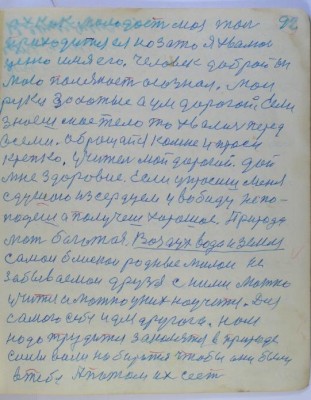 92
их как молодость моя там
приходится и но зато я хвалю
цело имя его, человек доброй
моло полезность осознал. Мои
руки золотые а ум дорогой. Если
знаеш мое тело то хвалис перед
всеми. Обращайся ко мне и проси
крепко, учител мой дорогой. дай
мне здоровие. Если упросиш меня
с душою из сердцем у вобиду не по-
подеш а получеш хорошое. Природа
моя богатая. Воздух вода и земля
самои близкои родные милои не
забываемои друзя с ними можно
учится и можно у них научится. Для
самого себе и для другого. нам
надо трудится заколятся в природе
силы воли набиратся чтобы они были
в тебе А потом их сеет